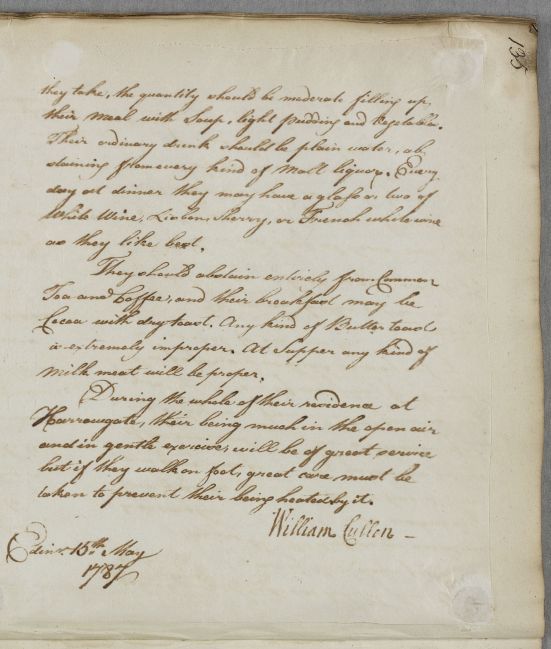 135
they take, the quantity should be moderate filling up,
their meal with Soup, light pudding and Vegetables.
Their ordinary drink should be plain water, ab,
staining from every kind of Malt liquor. Every
day at dinner they may have a glass or two of
White Wine, Lisbon, Sherry, or French white wine
as they like best.
They should abstain entirely from Common
Tea and Coffee, and their breakfast may be
Cocoa with dry toast. Any kind of Butter toast
is extremely improper. At Supper any kind of
milk meat will be proper.
During the whole of their residence at
Harrowgate, their being much in the open air
and in gentle exercise, will be of great service
but if they walk on foot, great care must be
taken to prevent their being heated by it.
William Cullen –
Edinr. 15th May
1787